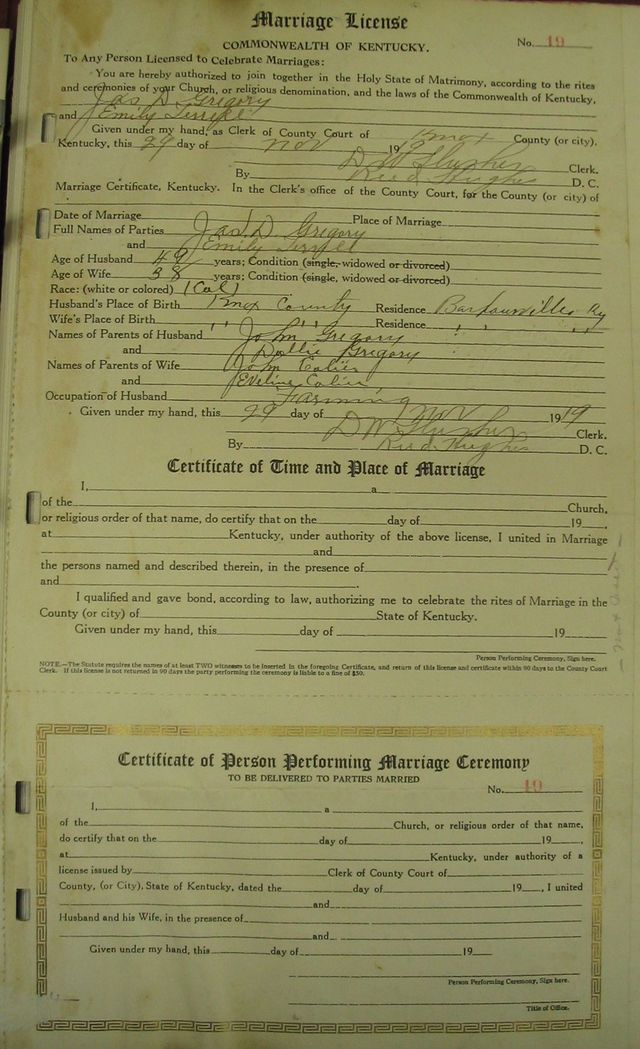 Marriage License
COMMONWEALTH OF KENTUCKY.
No. 19
To Any Person Licensed to Celebrate Marriages:
You are hereby authorized to join together in the Holy State of Matrimony, according to the rites
and ceremonies of your Church, or religious denomination, and the laws of the Commonwealth of Kentucky,
Jas D Gregory
and Emily Terrell
Given under my hand, as Clerk of County Court of Knox County (or city).
Kentucky, this 29 day of Nov 1919
D W Slusher Clerk.
By Reed Hughes D. C.
Marriage Certificate, Kentucky. In the Clerk's office of the County Court, for the County (or city) of
Date of Marriage Place of Marriage
Full Names of Parties Jas. D. Gregory
and Emily Terrell
Age of Husband 49 years; Condition (single, widowed or divorced)
Age of Wife 38 years; Condition (single, widowed or divorced)
Race: (white or colored) (Col)
Husband's Place of Birth Knox County Residence Barbourville Ky
Wife's Place of Birth " " Residence " "
Names of Parents of Husband John Gregory
and Dollie Gregory
Names of Parents of Wife John
and Eveline
Occupation of Husband Farming
Given under my hand, this 29 day of Nov 1919
D W Slusher Clerk.
By Reed Hughes D. C.
Certificate of Time and Place of Marriage
I, a
of the Church,
or religious order of that name, do certify that on the day of 19 ,
at Kentucky, under authority of the above license, I united in Marriage
and
the persons named and described therein, in the presence of
and .
I qualified and gave bond, according to law, authorizing me to celebrate the rites of Marriage in the
County (or city) of State of Kentucky.
Given under my hand, this day of 19
Person Performing Ceremony, Sign here.
NOTE.—The Statute requires the names of at least TWO witnesses to be inserted in the foregoing Certificate, and return of this license and certificate within 90 days to the County Court
Clerk. If this license is not returned in 90 days the party performing the ceremony is liable to a fine of $50.
Certificate of Person Performing Marriage Ceremony
TO BE DELIVERED TO PARTIES MARRIED
No. 19
I, a
of the Church, or religious order of that name,
do certify that on the day of 19 ,
at Kentucky, under authority of a
license issued by Clerk of County Court of
County, (or City), State of Kentucky, dated the day of 19 , I united
and
Husband and his Wife, in the presence of
and
Given under my hand, this day of 19
Person Performing Ceremony, Sign here.
Title of Office.